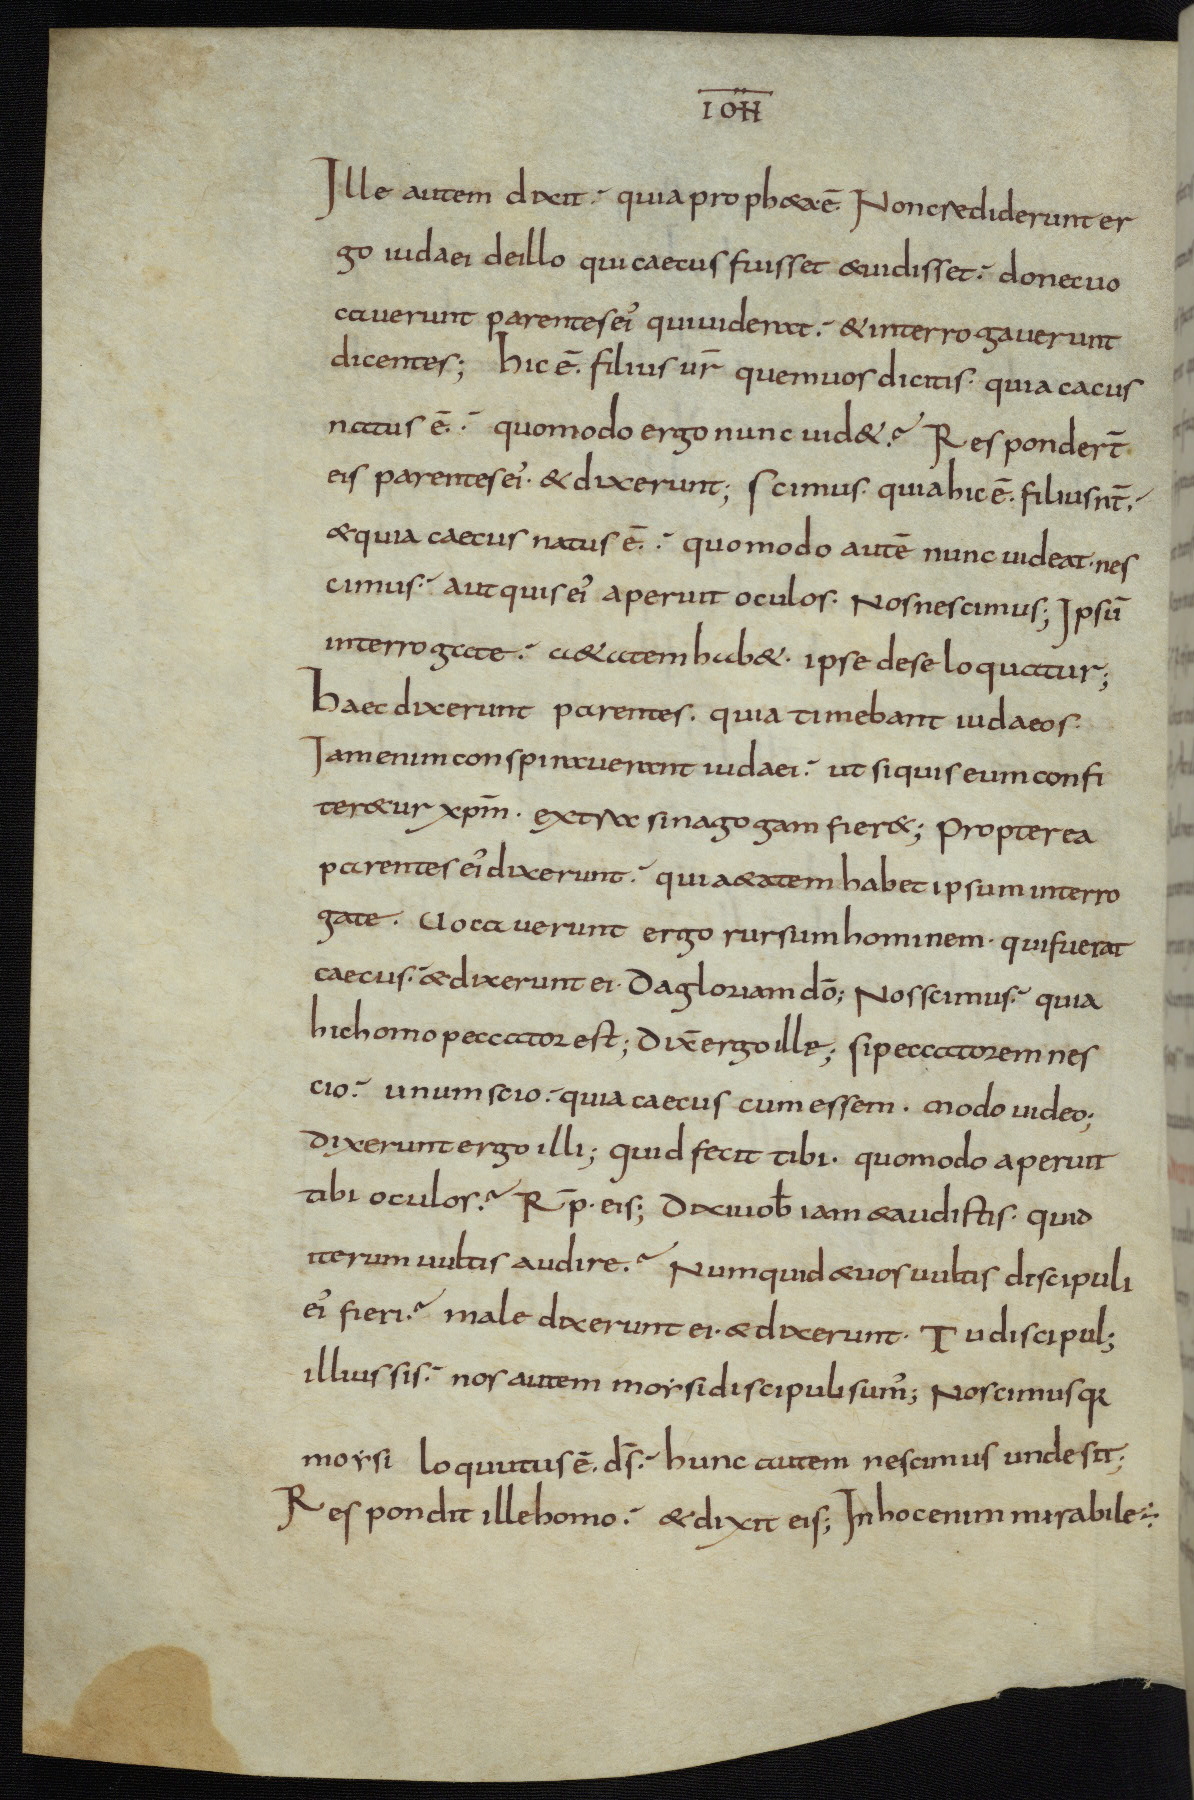 IOH̅
Ille autem dixit· quia proph&a ē. Non crediderunt er
go iudaei de illo qui caecus fuisset & uidisset· donec uo
cauerunt parentes ei᾽ qui uiderat· & interrogauerunt
dicentes; hic ē. filius ur̄ quem uos dicitis· quia cacus
natus ē.· quomodo ergo nunc uid&? Responder̄t
eis parentes ei᾽· & dixerunt; Scimus· quia hic ē. filius nt̄.
& quia caecus natus ē.· quomodo autē nunc uideat· nes
cimus· aut quis ei᾽ aperuit oculos· Nos nescimus; Ipsū
interrogate· a&atem hab&· ipse de se loquatur;
haec dixerunt parentes· quia timebant iudaeos·
Iam enim conspirauerant iudaei· ut si quis eum confi
ter&ur xp̄m· extra sinagogam fier&; Propterea
parentes ei᾽ dixerunt· quia a&atem habet ipsum interro
gate· Uocauerunt ergo rursum hominem· qui fuerat
caecus· & dixerunt ei· Da gloriam dō; Nos scimus· quia
hic homo peccator est; Dix̄ ergo ille; si peccatorem nes
cio· unum scio· quia caecus cum essem· modo uideo;
Dixerunt ergo illi; quid fecit tibi· quomodo aperuit
tibi oculos? Rp̄· eis; Dixi uob̄ iam & audistis· quid
iterum uultis audire? Numquid & uos uultis discipuli
ei᾽ fieri? male dixerunt ei· & dixerunt· Tu discipul;
illius sis· nos autem moysi discipuli sum᾽; Nos scimus qꝛ
moysi loquutus ē. ds̄· hunc autem nescimus unde sit;
Respondit ille homo· & dixit eis; In hoc enim mirabile